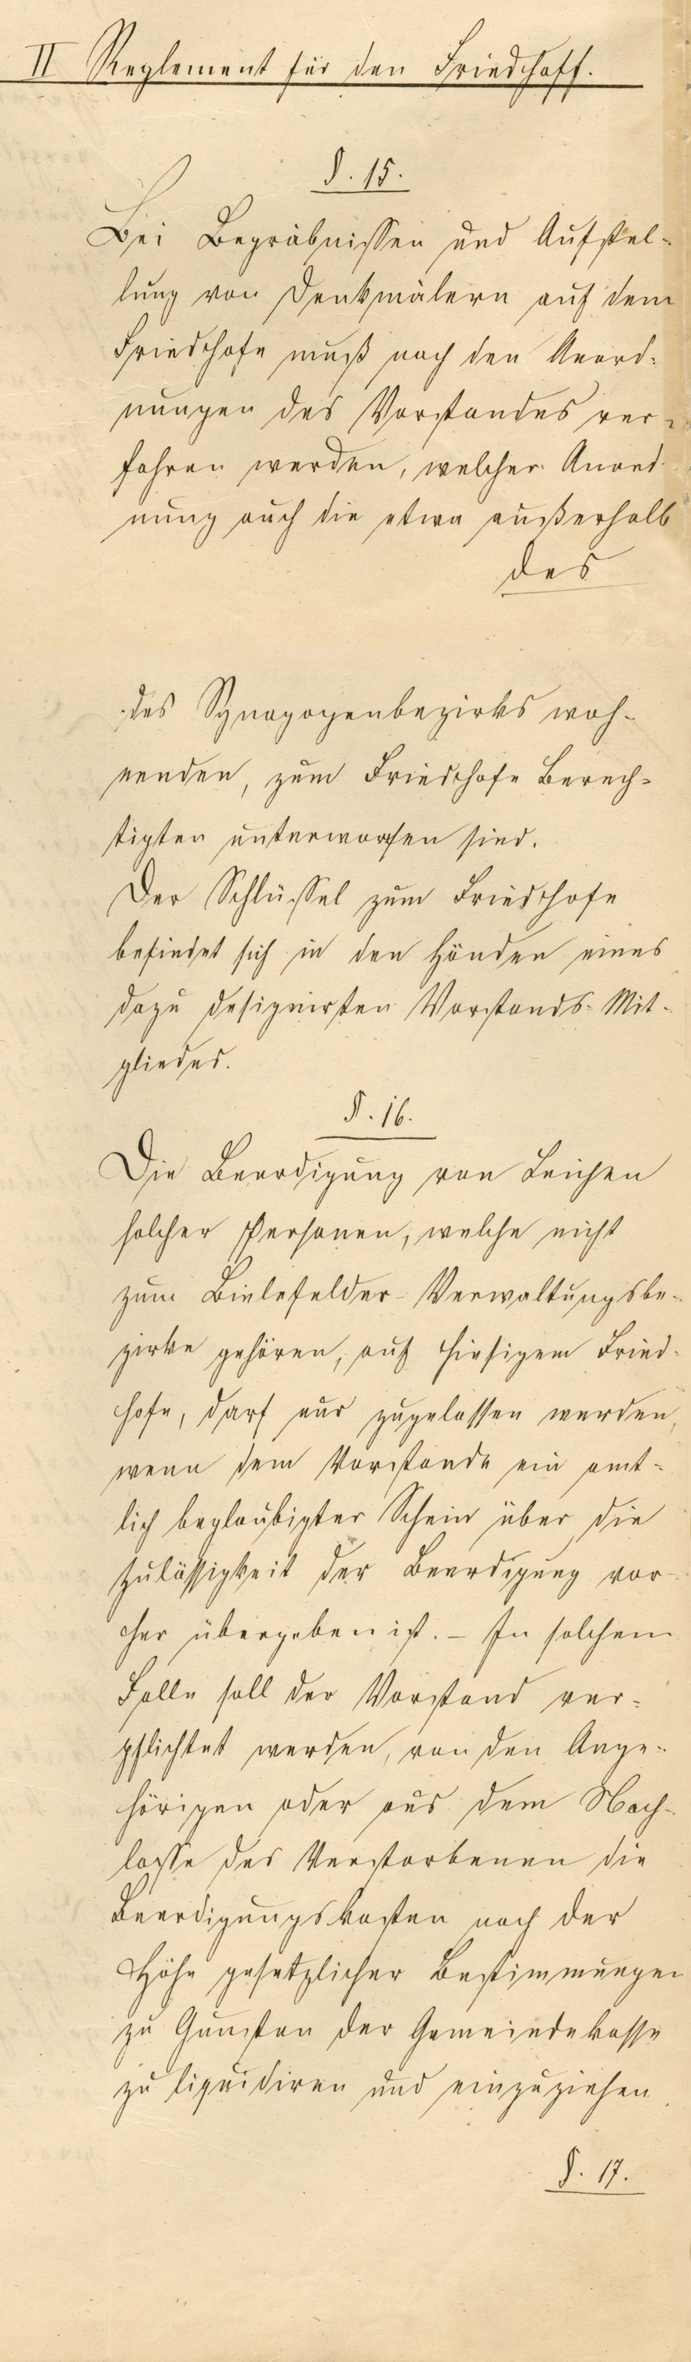 II Reglement für den Friedhoff.
§. 15.
Bei Begräbnissen und Aufstel-
lung von Denkmälern auf dem
Friedhofe muß nach den Anord-
nungen des Vorstandes ver-
fahren werden, welcher Anord
nung auch die etwa außerhalb
des
des Synagogenbezirks woh-
nenden, zum Friedhofe Berech-
tigten unterworfen sind.
Der Schlüssel zum Friedhofe
befindet sich in den Händen eines
dazu designirten Vorstands-Mit-
gliedes.
§. 16.
Die Beerdigung von Leichen
solcher Personen, welche nicht
zum Bielefelder-Verwaltungsbe-
zirke gehören, auf hiesigem Fried-
hofe, darf nur zugelassen werden,
wenn dem Vorstande ein amt-
lich beglaubigter Schein über die
Zulässigkeit der Beerdigung vor-
her übergeben ist. – In solchem
Falle soll der Vorstand ver-
pflichtet werden, von den Ange-
hörigen oder aus dem Nach-
lasse des Verstorbenen die
Beerdigungskosten nach der
Höhe gesetzlicher Bestimmungen
zu Gunsten der Gemeindekasse
zu liquidiren und einzuziehen.
§. 17.